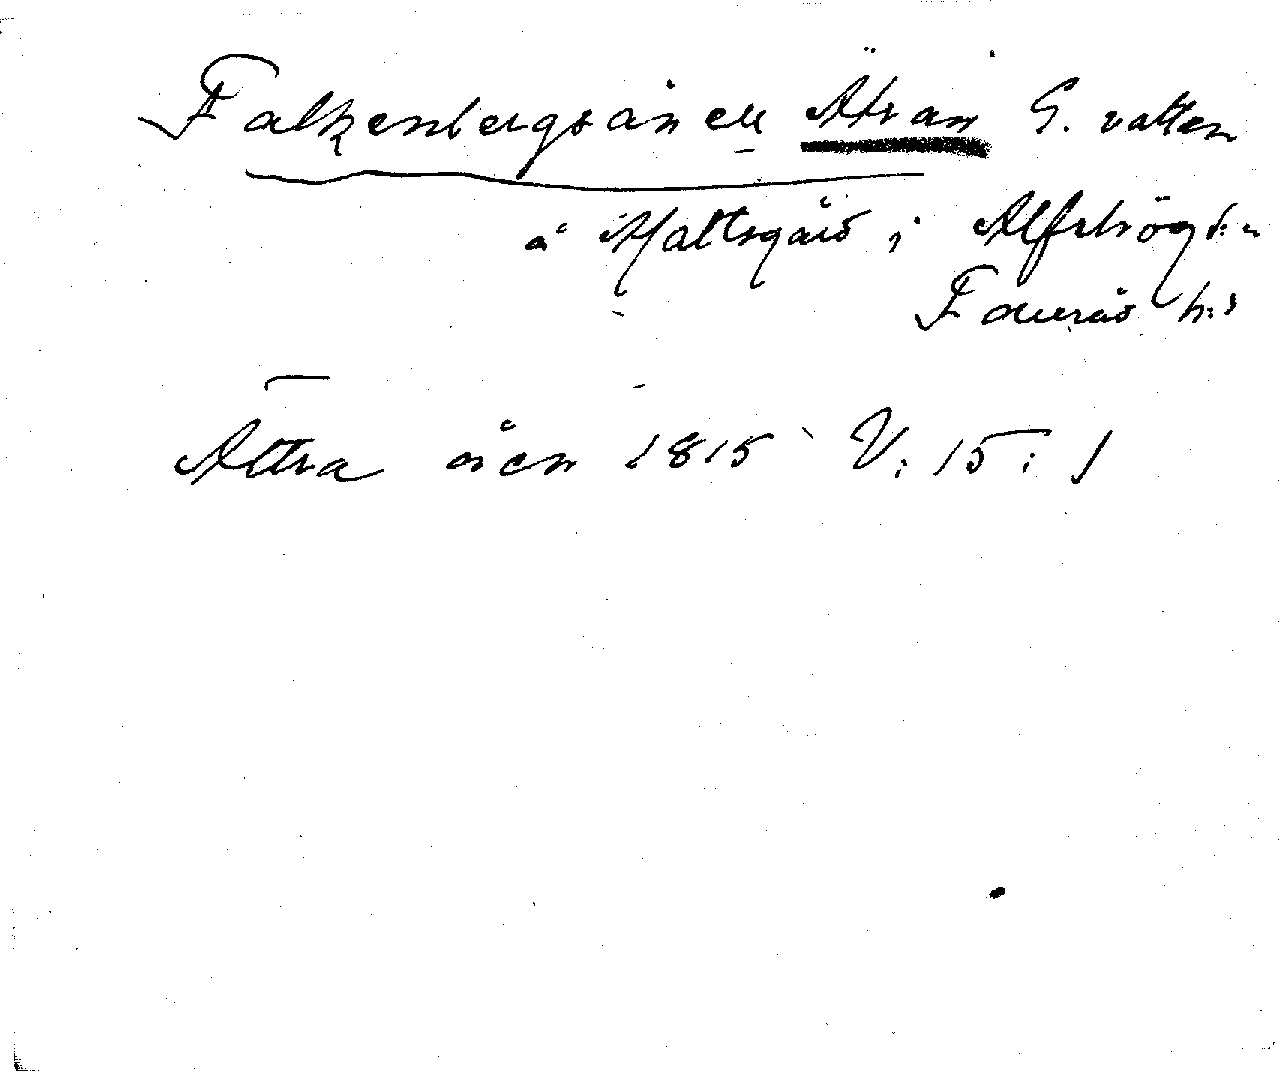 Falkenbergsån ell Ätran G. vatten
å Mattsgård i Alfshögs sn
Faurås hd
Ättra åen 1815 V: 15: 1